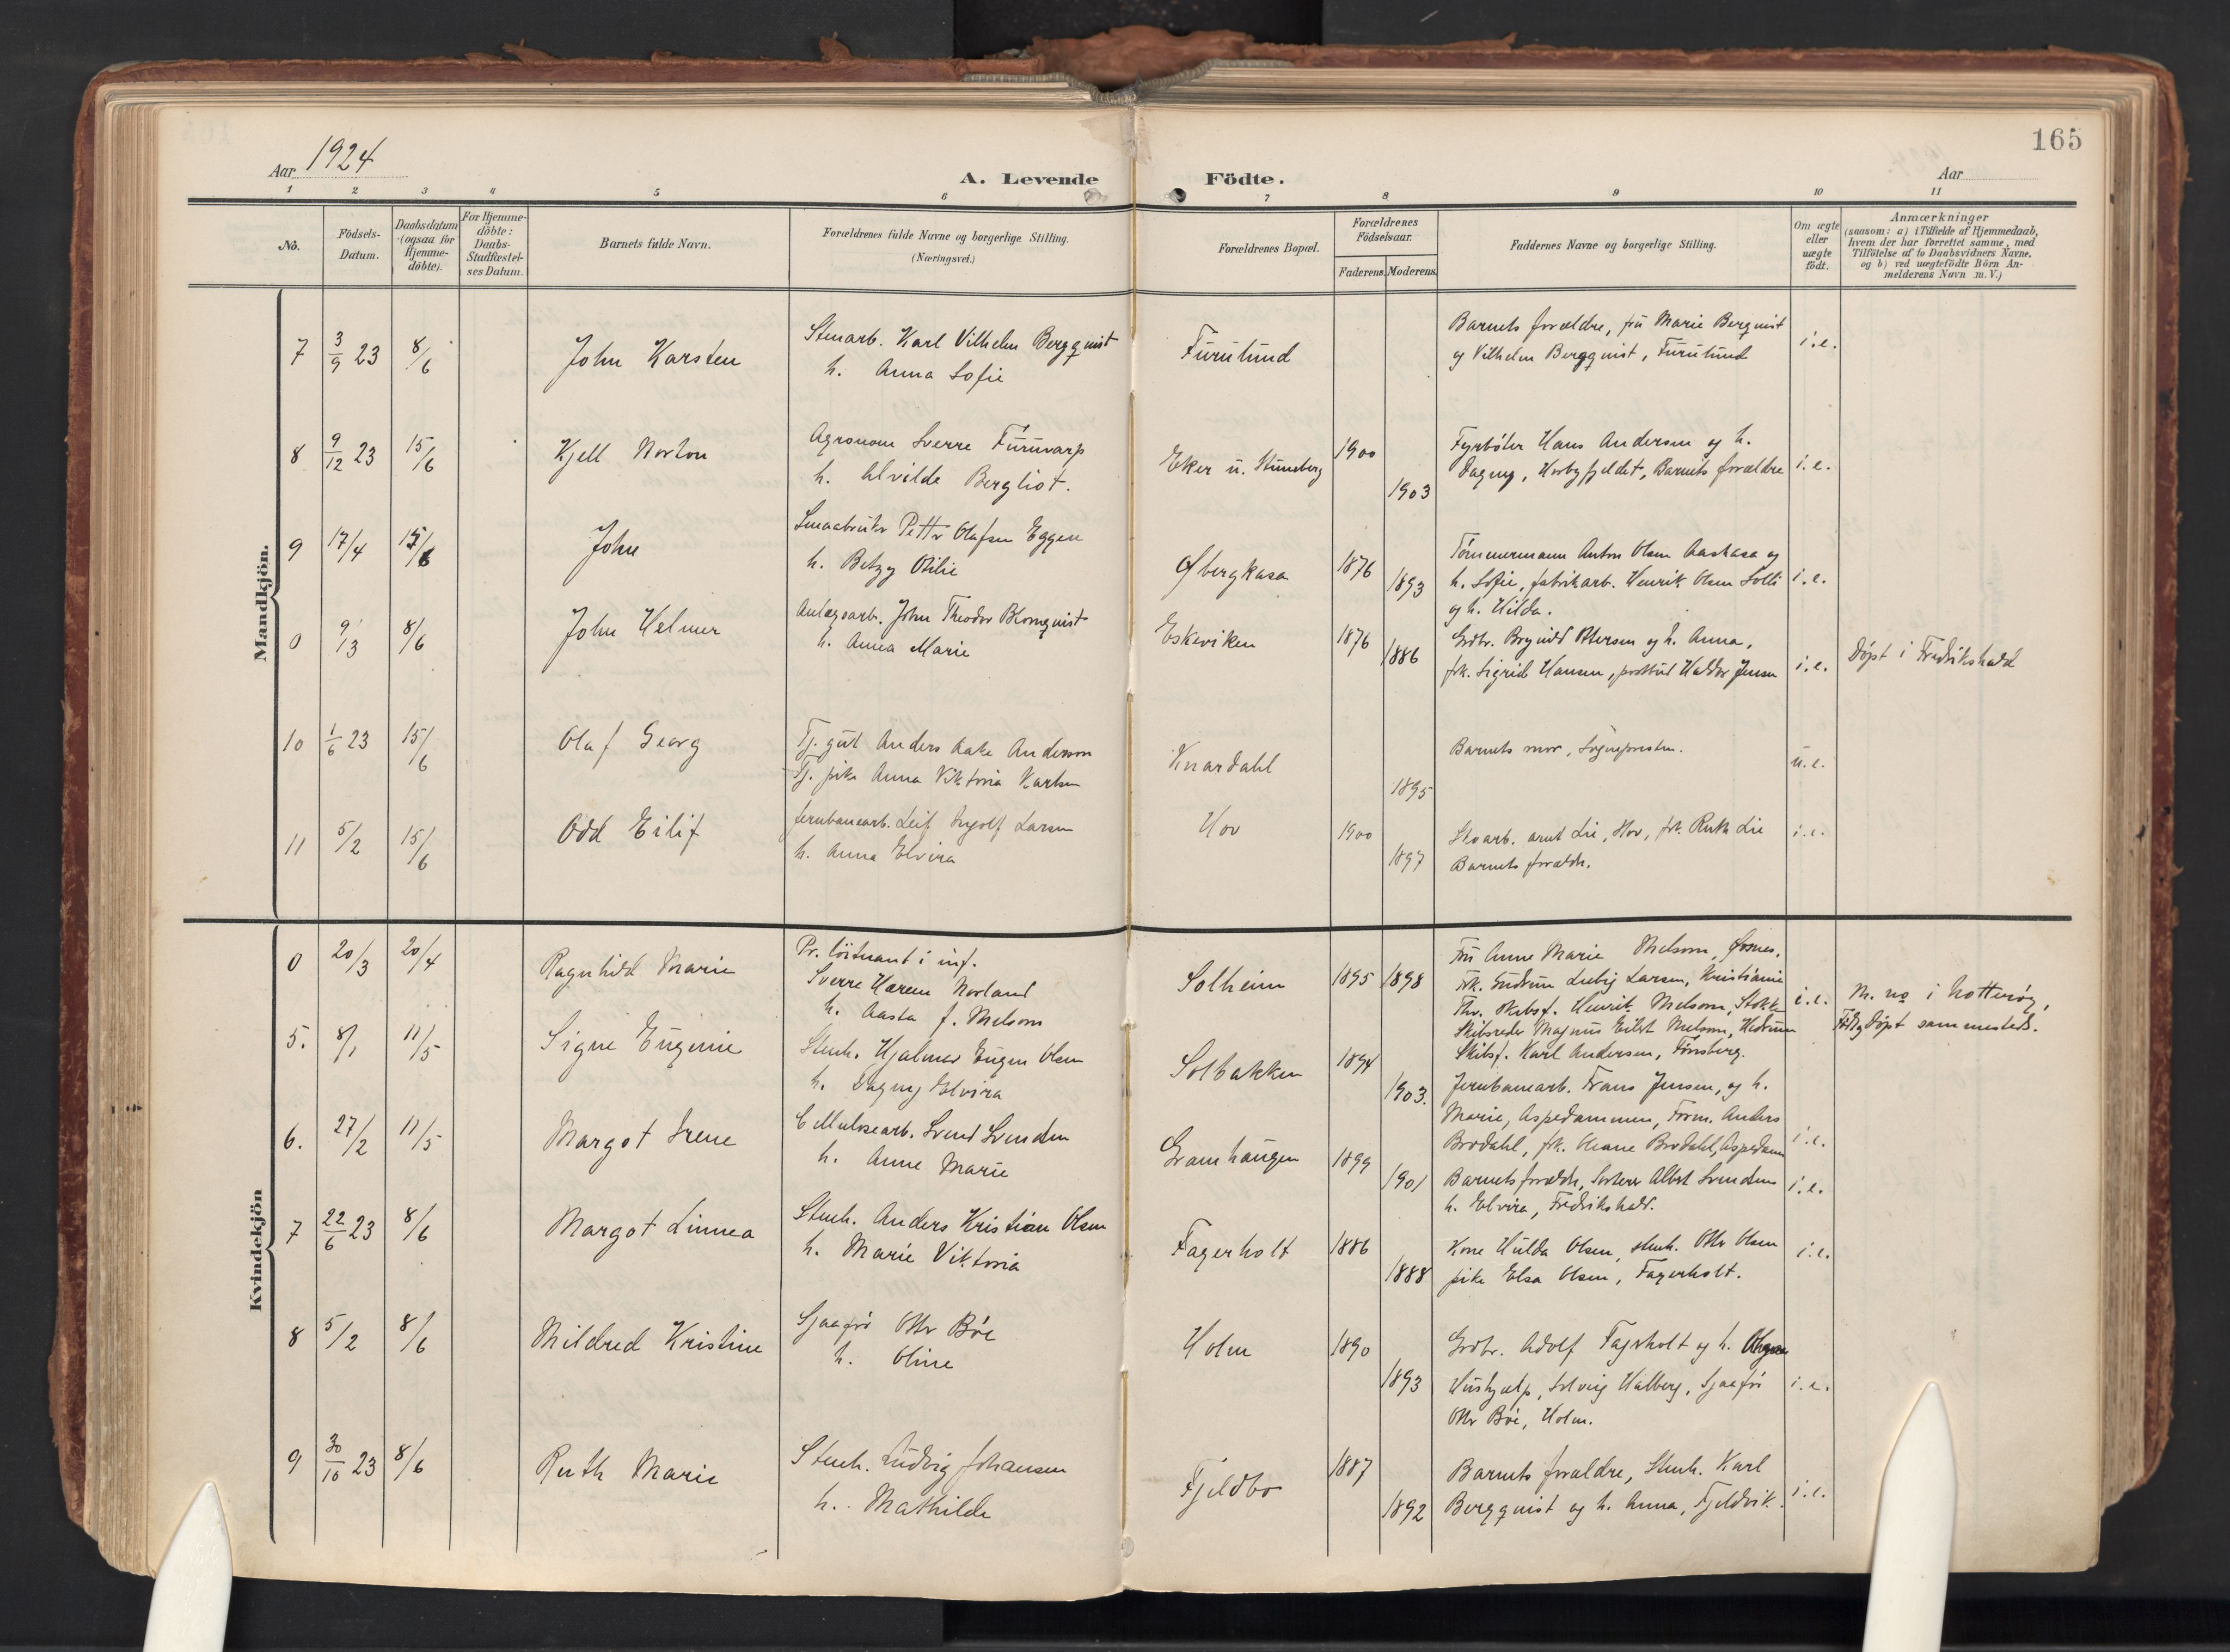 165
Aar 1924
A. Levende Födte.
Aar
1 2 3 4 5 6 7 8 9 10 11
No.
Födsels-
Datum.
Daabsdatum
(ogsaa for
Hjemme-
döbte).
For Hjemme-
döbte:
Daabs-
Stadfæstel-
ses Datum.
Barnets fulde Navn.
Forældrenes fulde Navne og borgerlige Stilling.
(Næringsvei.)
Forældrenes Bopæl.
Forældrenes
Födselsaar.
Faderens. Moderens.
Faddernes Navne og borgerlige Stilling.
Om ægte
eller
uægte
födt.
Anmærkninger
(saasom: a) i Tilfælde af Hjemmedaab,
hvem der har forrettet samme, med
Tilföielse af to Daabsvidners Navne.
og b) ved uægtefödte Börn An-
melderens Navn m.V.)
Mandkjön.
7 3/9 23 8/6 John Karsten
Stenarb. Karl Vilhelm Bergquist
h. Anna Sofie
Furulund
Barnets forældre, fru Marie Bergquist
og Vilhelm Bergquist, Furulund
i.e.
8 9/12 23 15/6 Kjell Norton
Agronom Sverre Furuvarp
h. Alvilde Bergliot.
Eker 1900 1903
Fyrbøter Hans Andersen og h.
Dagny, Barnets forældre
i.e.
9 17/4 15/6 John
Smaabruker Petter Olafsen Eggen
h. Betzy Otilie
1876 1893
Tømmermann Anton Olsen Aaskasa og
h. Sofie, fabrikarb. Henrik Olsen Solli
og h. Hilda.
i.e.
0 9/13 8/6 John Helmer
Anlægsarb. John Theodor Blomquist
h. Anna Marie
Eskeviken 1876 1886
Grdbr. Petersen og h. Anna,
frk. Sigrid Hansen, Haldor Jensen
i.e.
Døpt i Fredrikshald
10 1/6 23 15/6 Olaf Georg
Tj. gut Anders Aake Anderson
Tj. pike Anna Viktoria Karlsen
Knardahl 1895
Barnets mor, Sognepresten.
u.e.
11 5/2 15/6 Odd Eilif
Jernbanearb. Leif Ingolf Larsen
h. Anna Elvira
Hov 1900 1897
Arnt Lie, Hov, frk. Ruth Lie
Barnets forældre.
i.e.
Kvindekjön
0 20/3 20/4 Ragnhild Marie
Pr. löitnant i inf.
Sverre Harem Norland
h. Aasta f. Melsom
Solheim 1895 1898
Fru Anne Marie Melsom,
Frk. Gudrun Liebig Larsen, Kristiania
Skibsf. Henrik Melsom, Stokke
Skibsreder Magnus Eilert Melsom, Hedrum
Skibsf. Karl Andersen, Tønsberg.
i.e.
M. no i Nøtterøy,
døpt sammesteds.
5. 8/1 11/5 Signe Eugenie
Stenh. Hjalmar Eugen Olsen
h. Dagny Elvira
Solbakken 1894 1903.
Jernbanearb. Frans Jensen, og h.
Marie, Aspedammen, Form. Anders
Brødahl, frk. Brødahl, Aspedam
i.e.
6. 27/2 11/5 Margot Irene
Cellulosearb. Svend Svendsen
h. Anne Marie
Gramhaugen 1899 1901
Barnets forældre, Sorterer Albert Svendsen
h. Elvira, Fredrikshald.
i.e.
7 22/6 23 8/6 Margot Linnea
Stenh. Anders Kristian Olsen
h. Marie Viktoria
Fagerholt 1886 1888
Kone Hulda Olsen, stenh. Otto Olsen
pike Elsa Olsen, Fagerholt.
i.e.
8 5/2 8/6 Mildred Kristine
Sjaafør Otto Bøe
h. Oline
Holm 1890 1893
Grdbr. Adolf Fagerholt og h.
Hushjælp, Solveig Halberg, Sjaafør
Otto Bøe, Holm.
i.e.
9 30/10 23 8/6 Ruth Marie
Stenh. Ludvig Johansen
h. Mathilde
Fjeldbo 1887 1892
Barnets forældre, Stenh. Karl
Bergquist og h. Anna, Fjeldvik.
i.e.